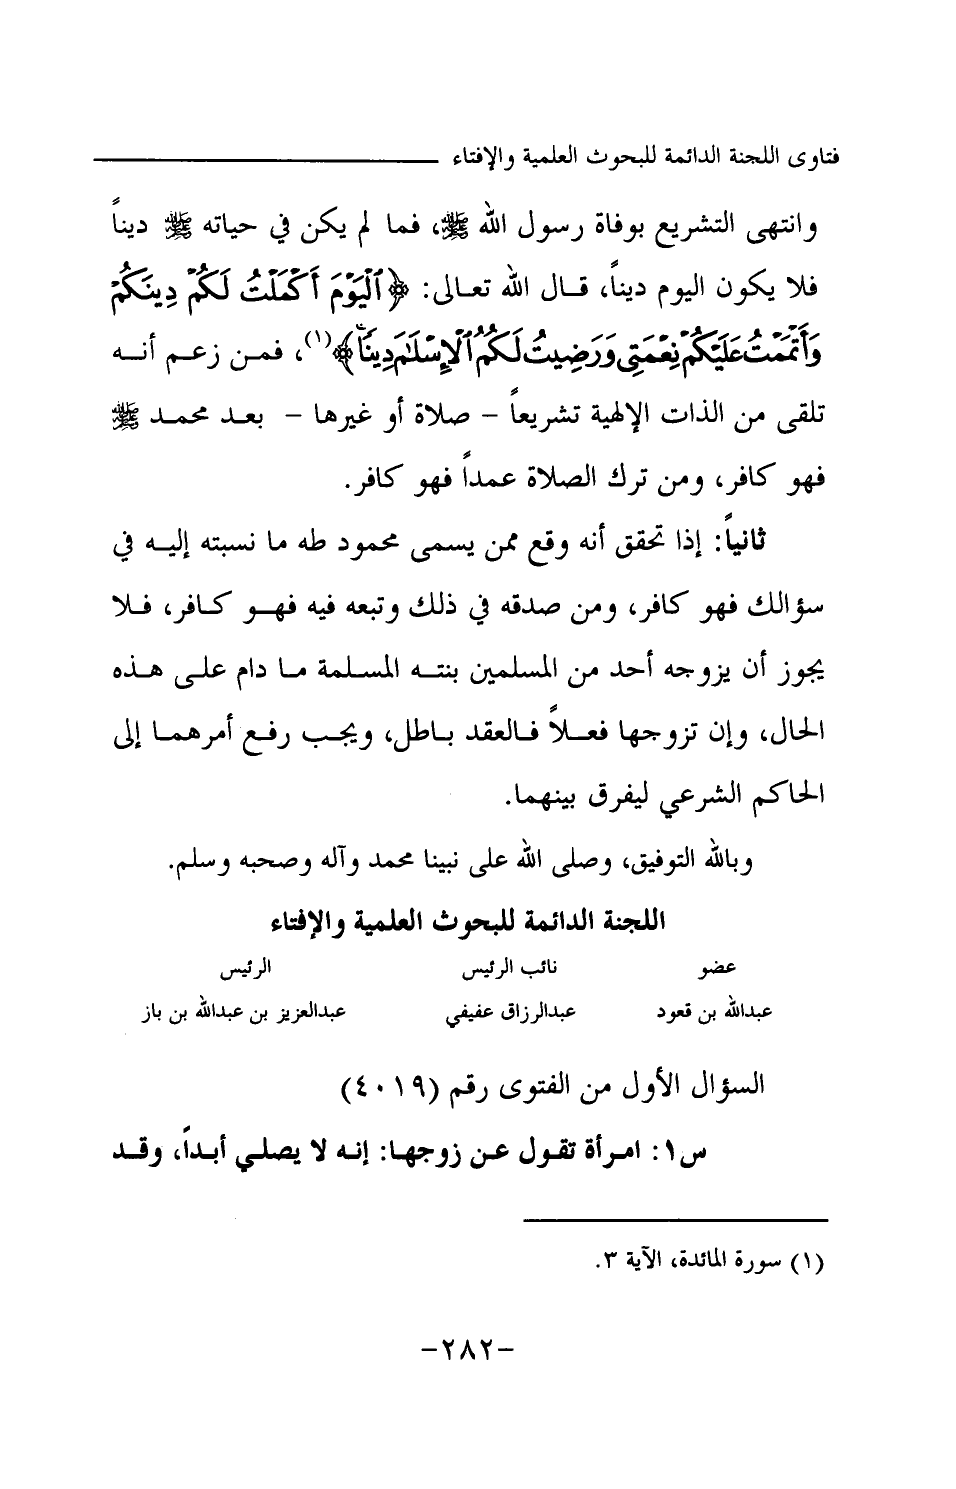 فتاوى اللجنة الدائمة للبحوث العلمية والإفتاء
وانتهى التشريع بوفاة رسول الله ﷺ، فما لم يكن في حياته ﷺ ديناً
فلا يكون اليوم ديناً، قال الله تعالى: ﴿ٱلْيَوْمَ أَكْمَلْتُ لَكُمْ دِينَكُمْ
وَأَتْمَمْتُ عَلَيْكُمْ نِعْمَتِى وَرَضِيتُ لَكُمُ ٱلْإِسْلَٰمَ دِينًا﴾(١)، فمن زعم أنه
تلقى من الذات الإلهية تشريعاً – صلاة أو غيرها – بعد محمد ﷺ
فهو كافر، ومن ترك الصلاة عمداً فهو كافر.
ثانياً: إذا تحقق أنه وقع ممن يسمى محمود طه ما نسبته إليه في
سؤالك فهو كافر، ومن صدقه في ذلك وتبعه فيه فهو كافر، فلا
يجوز أن يزوجه أحد من المسلمين بنته المسلمة ما دام على هذه
الحال، وإن تزوجها فعلاً فالعقد باطل، ويجب رفع أمرهما إلى
الحاكم الشرعي ليفرق بينهما.
وبالله التوفيق، وصلى الله على نبينا محمد وآله وصحبه وسلم.
اللجنة الدائمة للبحوث العلمية والإفتاء
عضو نائب الرئيس الرئيس
عبدالله بن قعود عبدالرزاق عفيفي عبدالعزيز بن عبدالله بن باز
السؤال الأول من الفتوى رقم (٤٠١٩)
س١: امرأة تقول عن زوجها: إنه لا يصلي أبداً، وقد
(١) سورة المائدة، الآية ٣.
–٢٨٢–